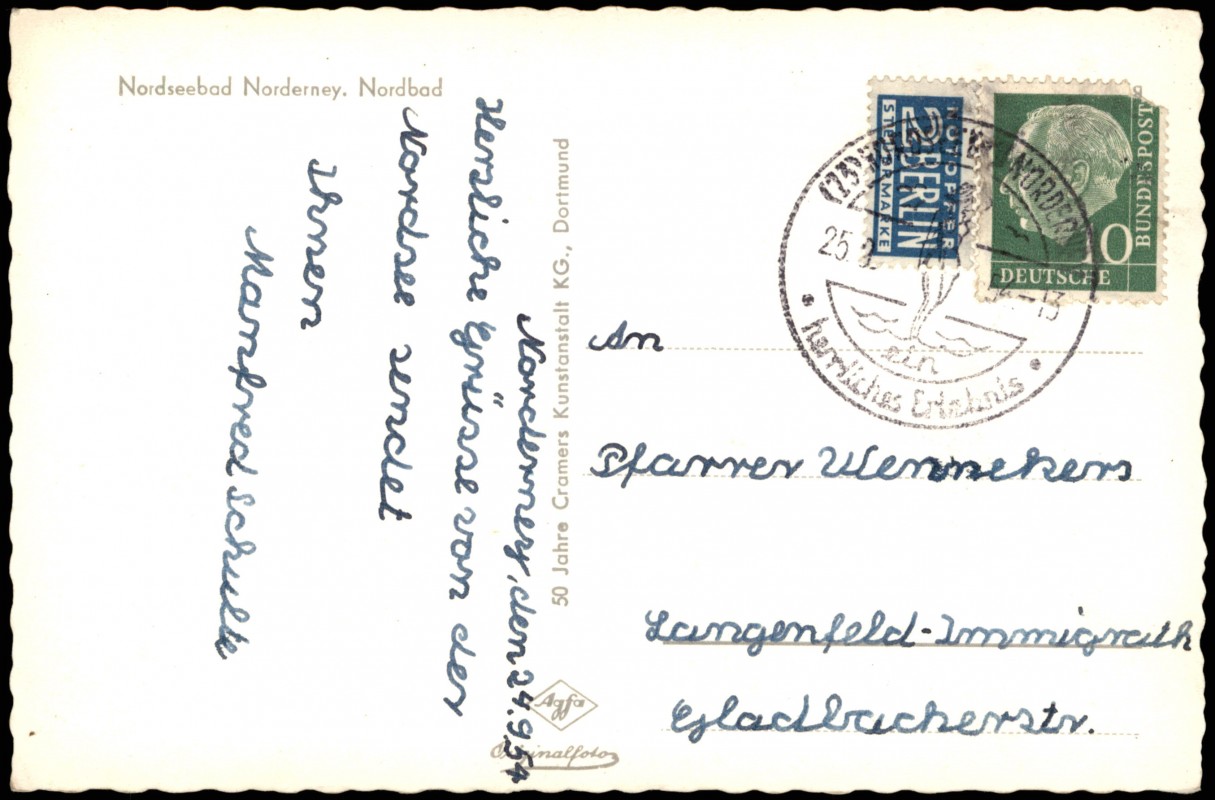 Nordseebad Norderney. Nordbad
Norderney, den 24.9.54
Herzliche Grüsse von der
Nordsee sendet
Ihnen
Manfred Schulte
50 Jahre Cramers Kunstanstalt KG., Dortmund
Agfa
Originalfoto
NOTOPFER
2 BERLIN
STEUERMARKE
DEUTSCHE
BUNDESPOST
25.9.
54-13
ein
herrliches Erlebnis
An
Pfarrer Wennekers
Langenfeld-Immigrath
Gladbacherstr.